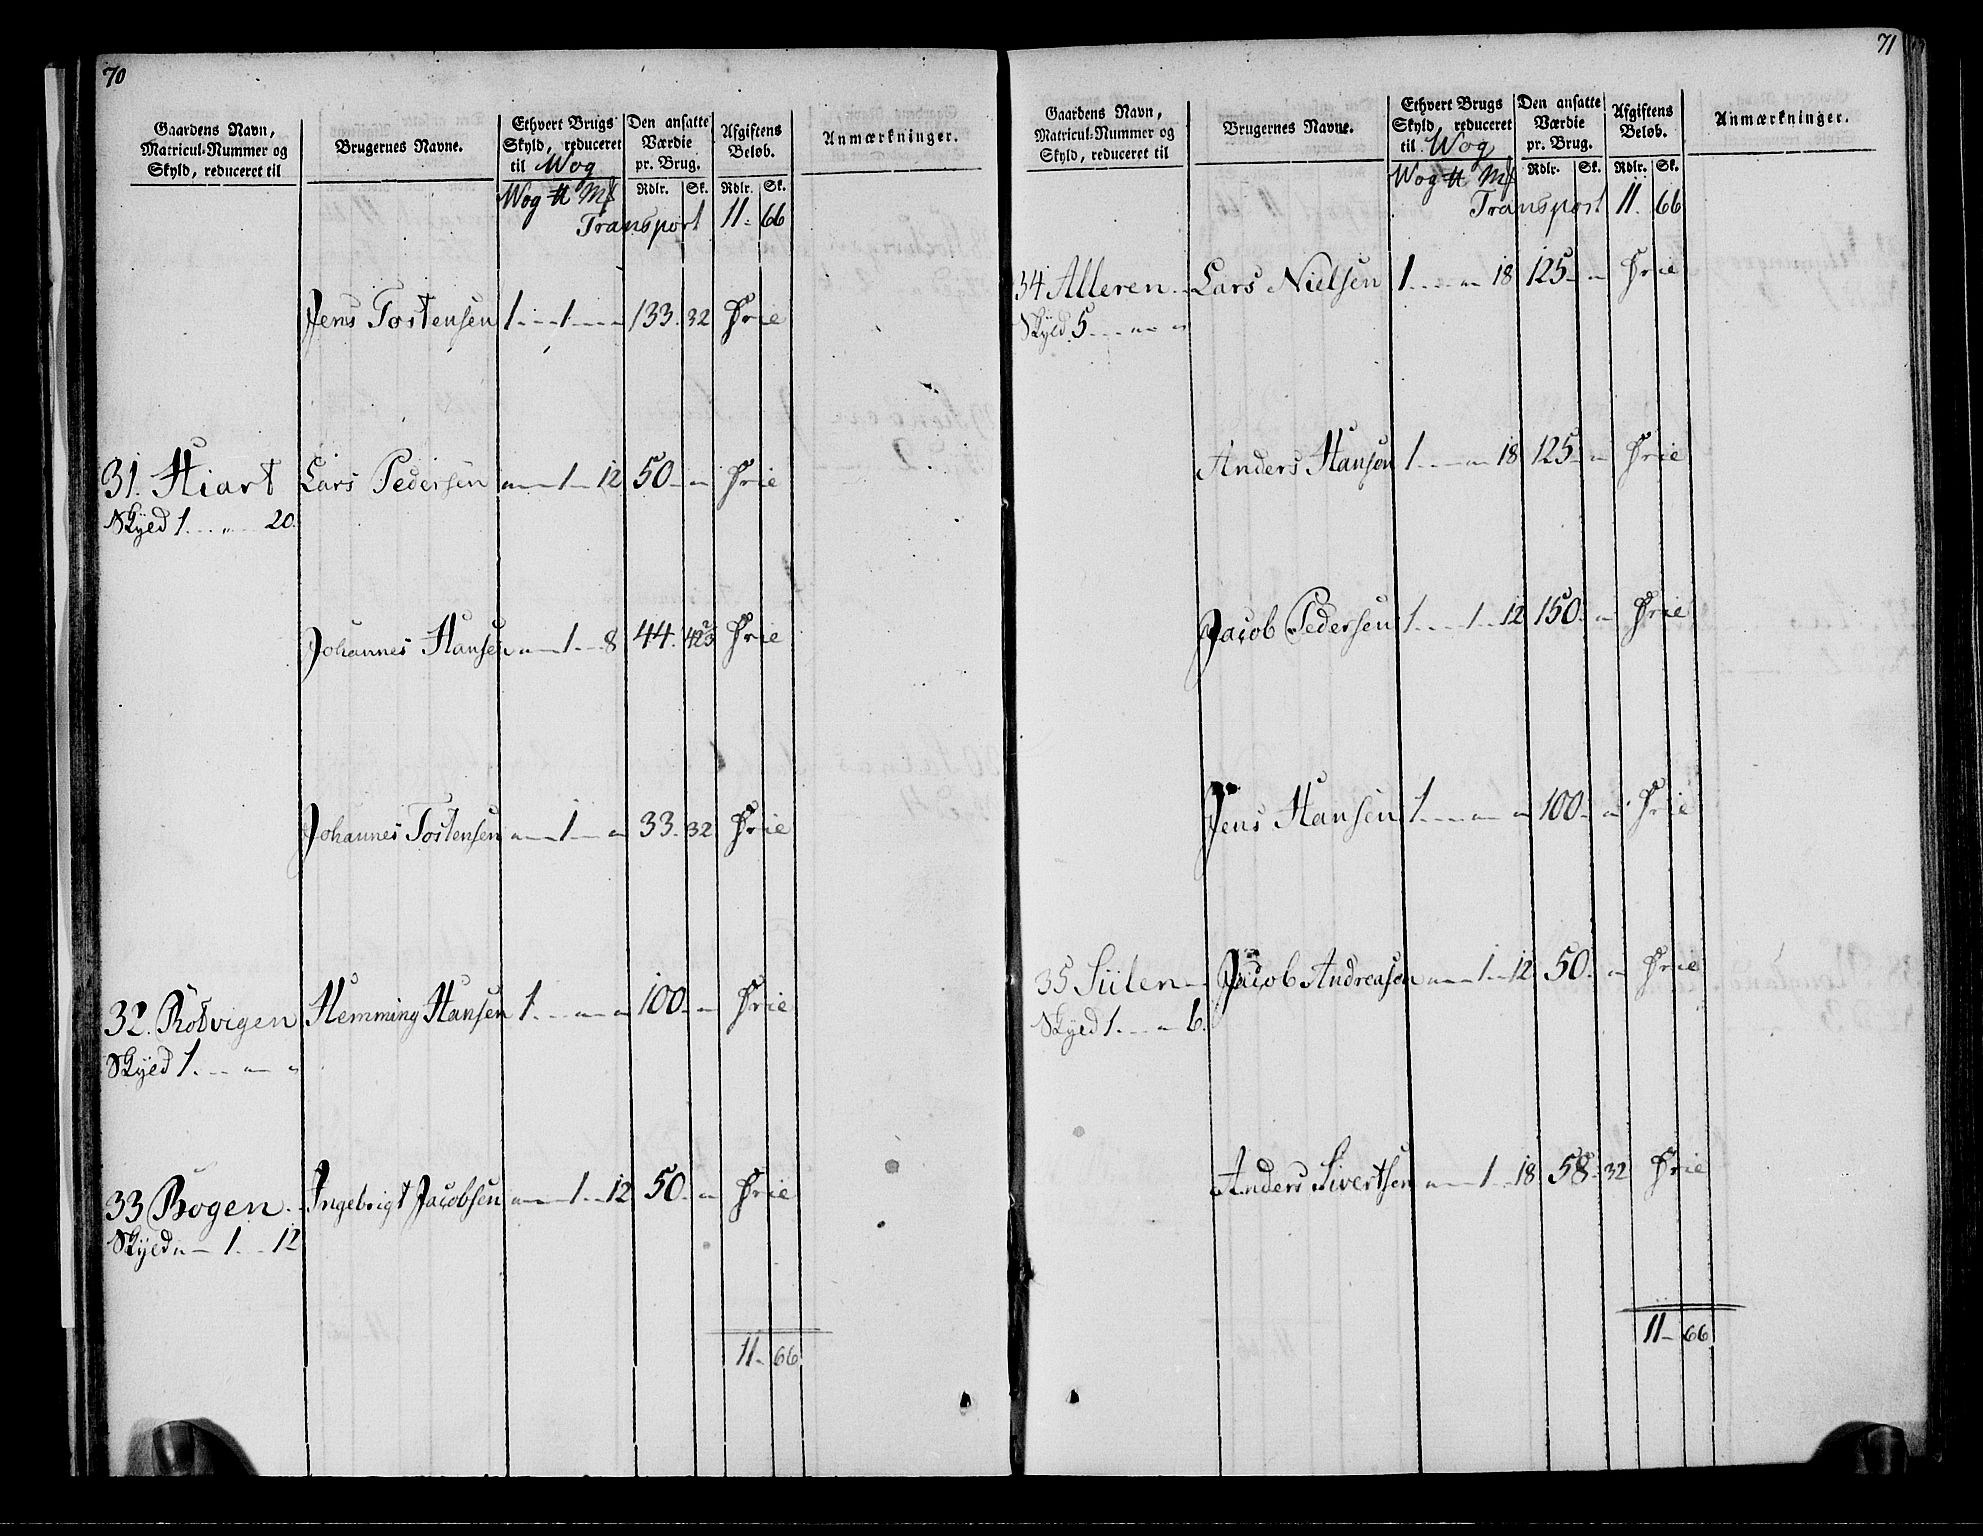 70
Gaardens Navn, Matricul-Nummer og Skyld, reduceret til
Brugernes Navne.
Ethvert Brugs Skyld, reduceret til Wog
Den ansatte Værdie pr. Brug.
Afgiftens Beløb.
Anmærkninger.
Wog ℔ Mk Rdlr. Sk. Rdlr. Sk.
Transport 11 66
Jens Tostensen 1 - 1 - - 133 32 Frie
31. Hiart Lars Pedersen " - 1 - 12 50 - " Frie
Skyld 1 - " - 20
Johannes Hansen " - 1 - 8 44 Frie
Johannes Tostensen " - 1 - " 33 32 Frie
32. Rotvigen Hemming Hansen 1 - " - " 100 - " Frie
Skyld 1 - " - "
33 Bogen Ingebrigt Jacobsen " - 1 - 12 50 - " Frie
Skyld " - 1 - 12
11 - 66
71
Gaardens Navn, Matricul-Nummer og Skyld, reduceret til
Brugernes Navne.
Ethvert Brugs Skyld, reduceret til Wog
Den ansatte Værdie pr. Brug.
Afgiftens Beløb.
Anmærkninger.
Wog ℔ Mk Rdlr. Sk. Rdlr. Sk.
Transport 11 66
34 Alleren Lars Nielsen 1 - " - 18 125 - " Frie
Skyld 5 - " - "
Anders Hansen 1 - " - 18 125 - " Frie
Jacob Pedersen 1 - 1 - 12 150 - " Frie
Jens Hansen 1 - " - " 100 - " Frie
35 Sülen Jacob Andreasen " - 1 - 12 50 - " Frie
Skyld 1 - " - 6
Anders Sivertsen " - 1 - 18 58 32 Frie
11 - 66